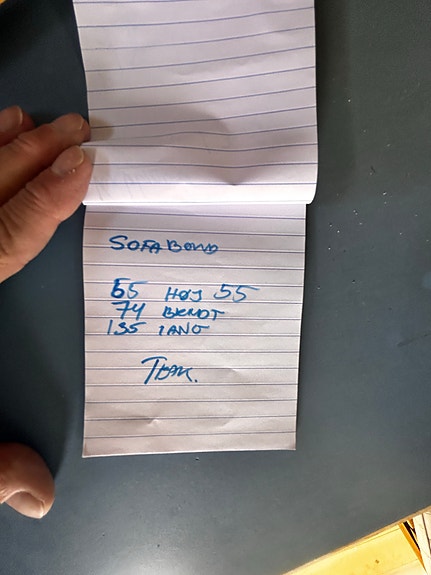 SOFA BORD
55 HØJ 55
74 BREDT
135 LANGT